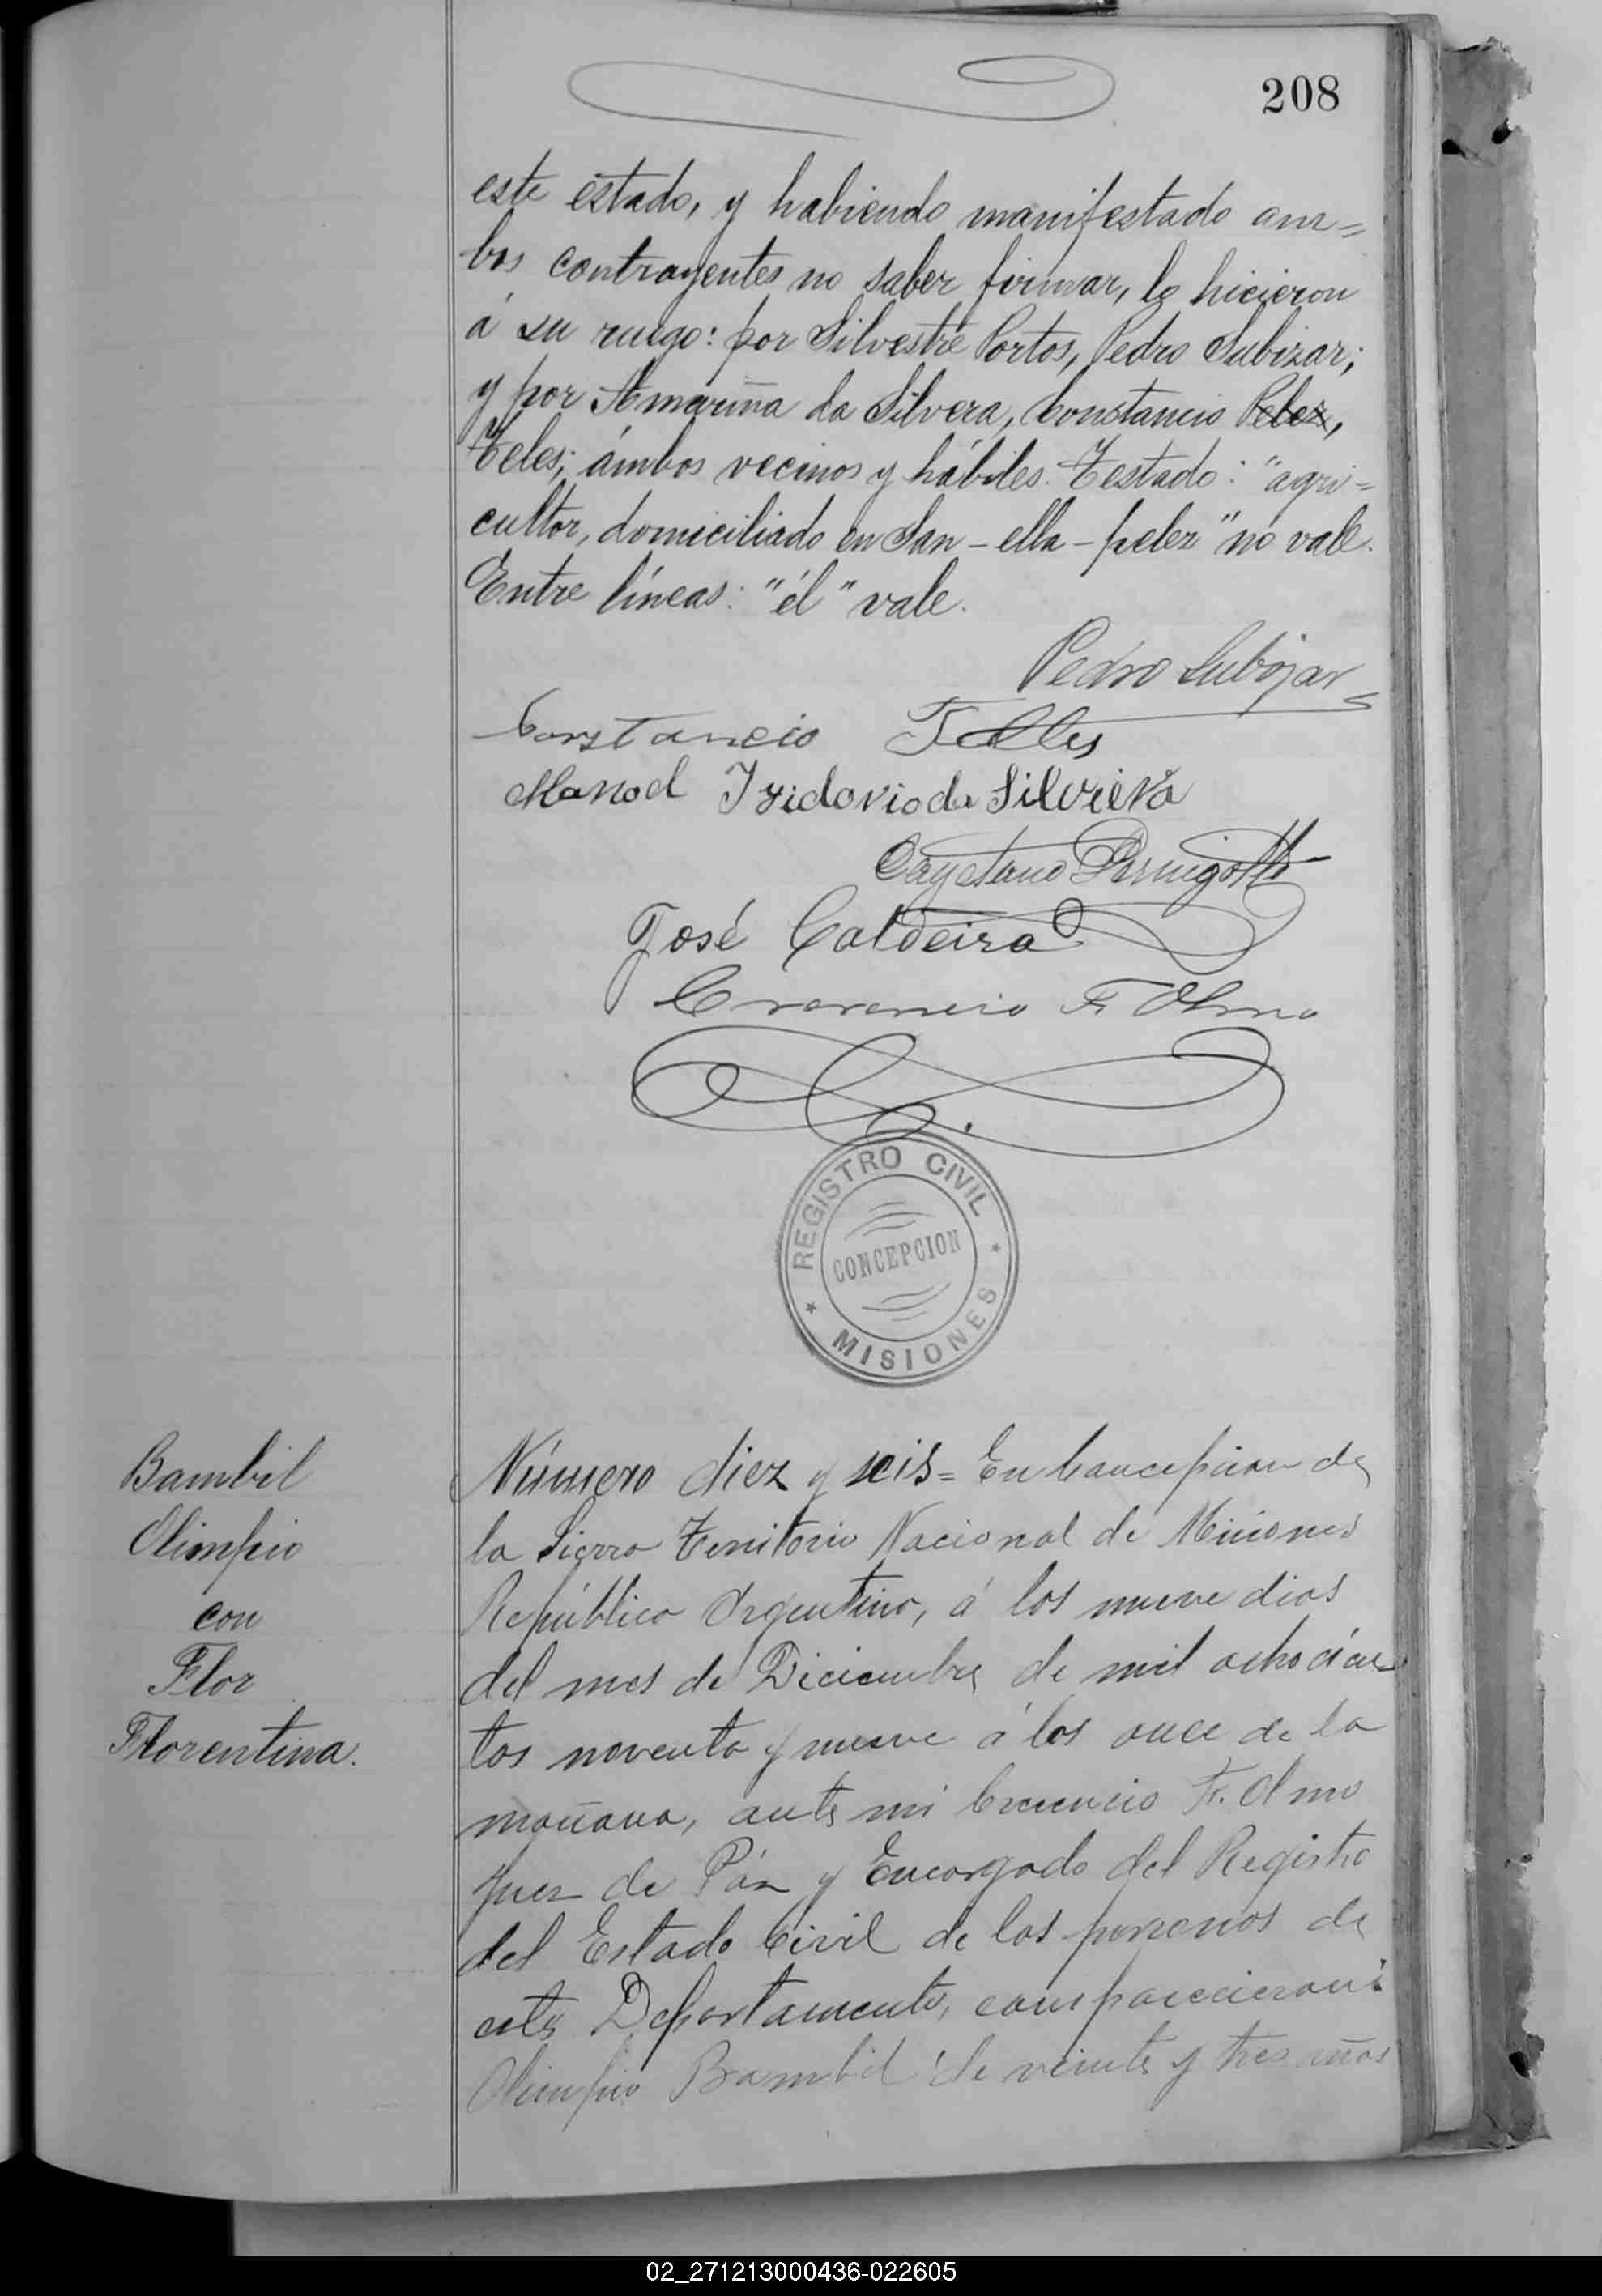 208
este estado, y habiendo manifestado am=
bos contrayentes no saber firmar, lo hicieron
á su ruego: por Silvestre Portos, Pedro Subizar;
y por Amariña da Silvera, Constancio Pelez,
Teles; ámbos vecinos y hábiles. Testado: "agri=
cultor, domiciliado en San - ella - pelez" no vale.
Entre líneas: "él" vale.
Pedro Subizar
Constancio Telles
Manoel Izidorio da Silviera
Cayetano
José Caldeira
Crecencio F. Olmo
REGISTRO CIVIL
CONCEPCION
MISIONES
Bambil
Olimpio
con
Flor
Florentina.
Número diez y seis = En Concepcion de
la Sierra Territorio Nacional de Misiones
República Argentina, á los nueve dias
del mes de Diciembre de mil ochocien
tos noventa y nueve á las once de la
mañana, ante mi Crecencio F. Olmo
Juez de Páz y Encargado del Registro
del Estado Civil de las personas de
este Departamento, comparecieron:
Olimpio Bambil de veinte y tres años
02_271213000436-022605